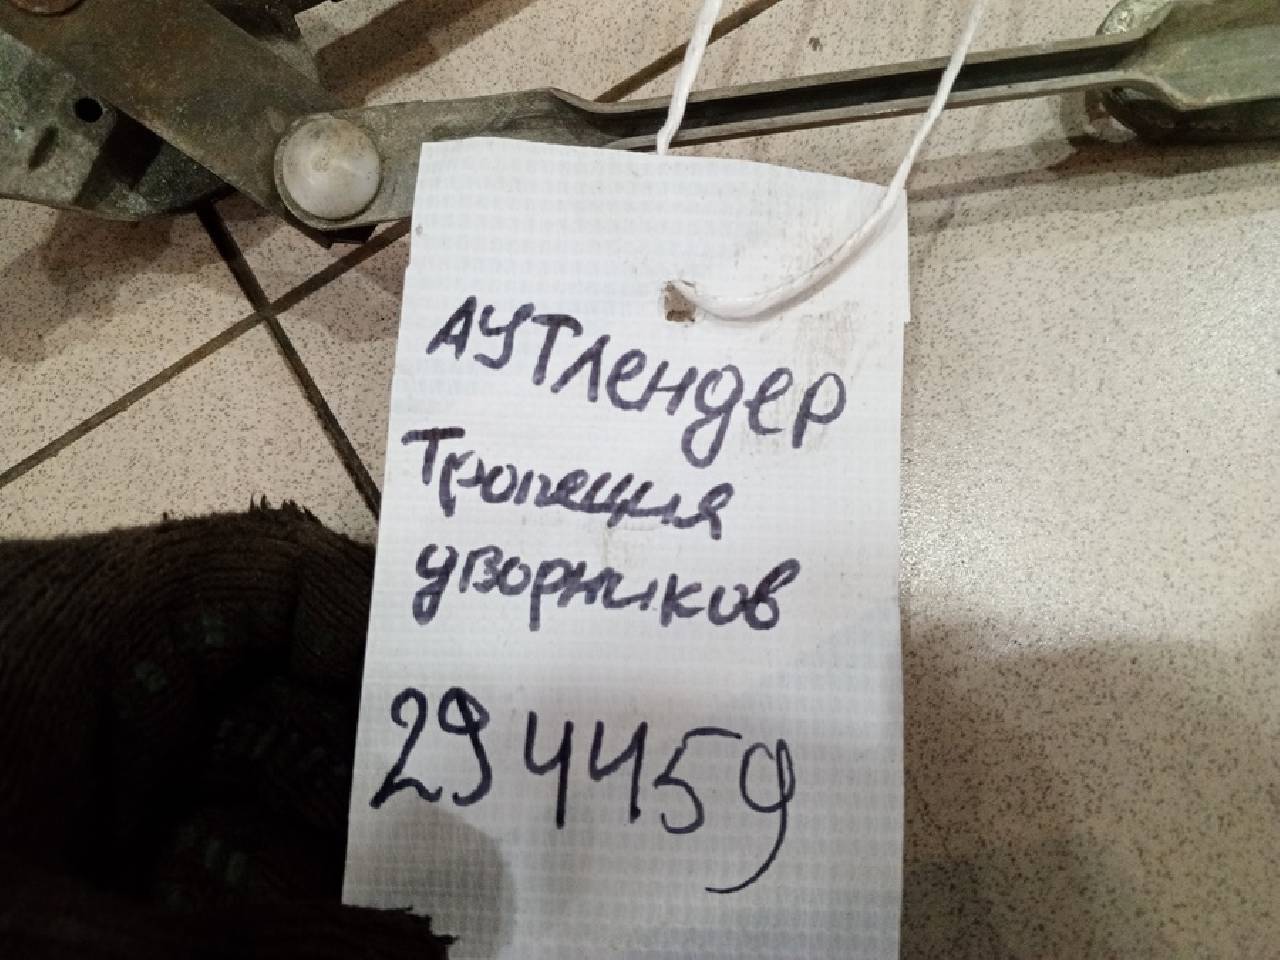 АУТлендер
Трапеция
дворников
294459